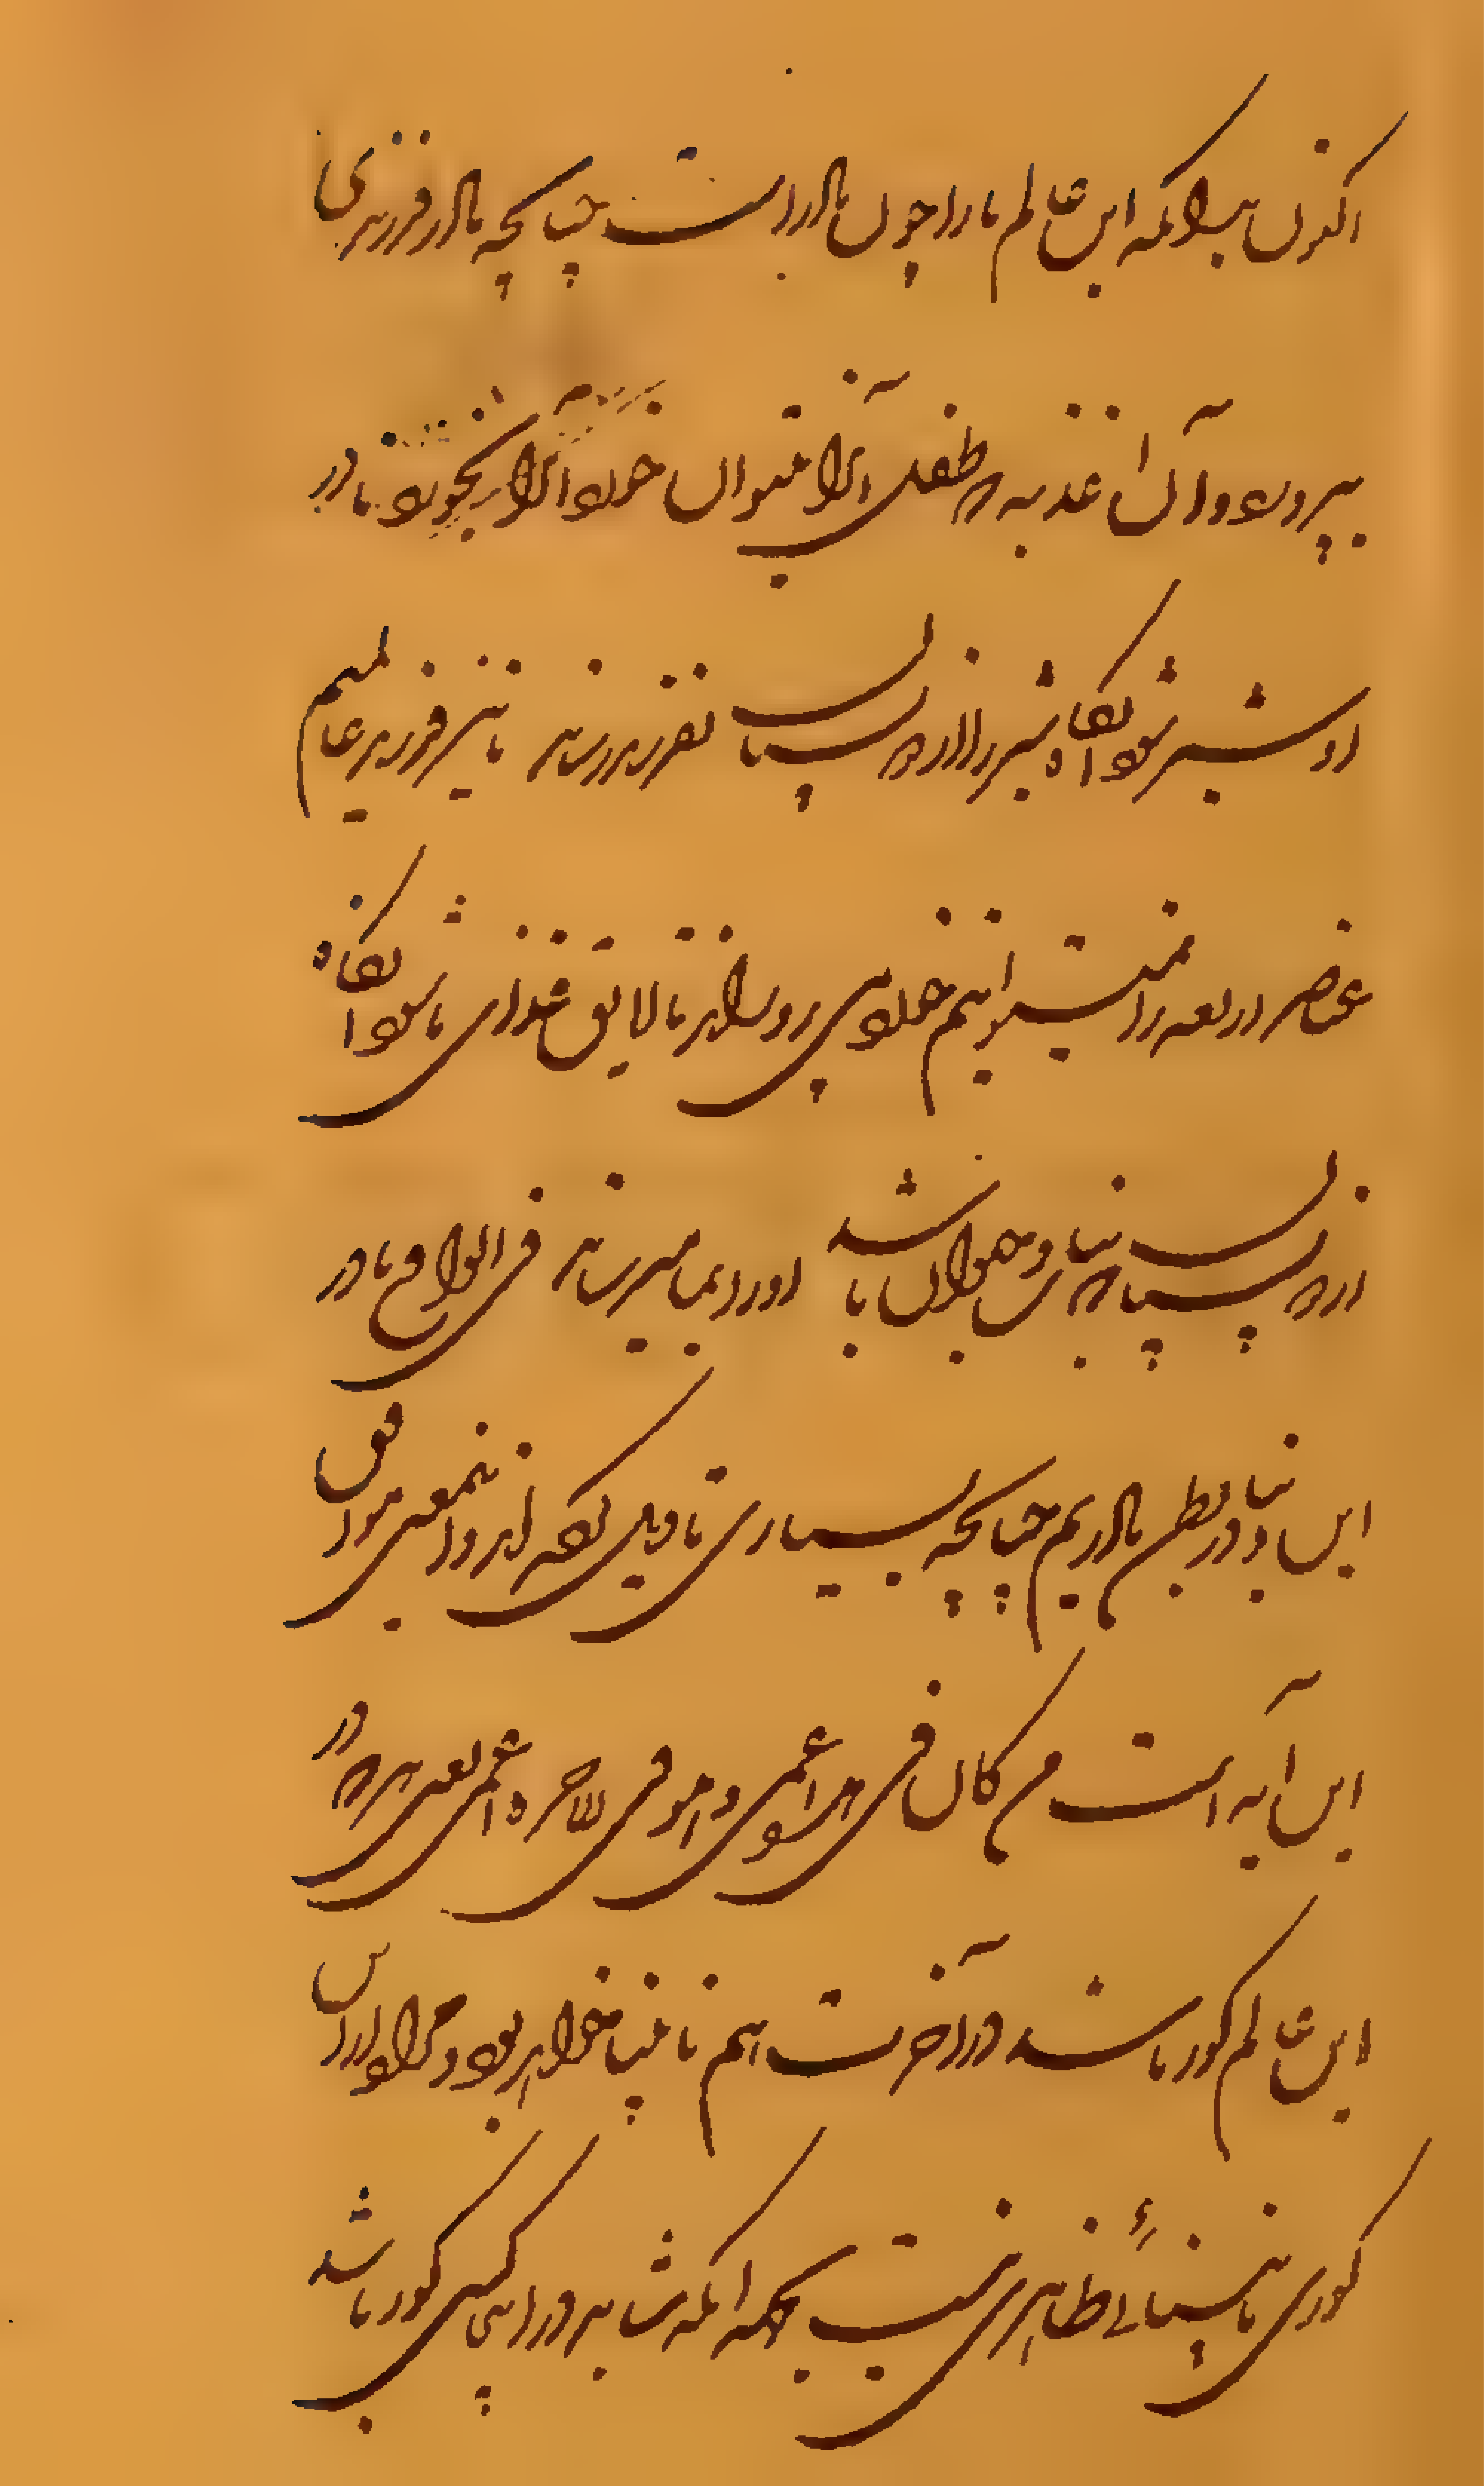 اکنون بدانکه این عالم ما را چون مادر است چنانچه مادر فرزندی
بپرورد و آن اغذیه که طفل آنرا نتواند خورد آنرا بخورد تا در
او شیر شود آنگاه شیر را از ره پستان بفرزند رساند ما نیز فرزند عالمیم
عناصر اربعه را نمیتوانیم خورد می پروراند تا لایق غذای ما شود آنگاه
از ره پستان که نبات و حیوان باشد او را بما میرساند فی الواقع ما در
این دنیا در بطن مادریم چنانچه بسیاری تاویل گفته اند و این معنی موافق
این آیه است من کان فی هذه اعمی و هو فی الآخرة اعمی یعنی هر که در
این عالم کور باشد در آخرت هم نابینا خواهد بود و مراد از این
کوری نابینائی ظاهری نیست بجهة آنکه شاید در راهی کسی کور باشد